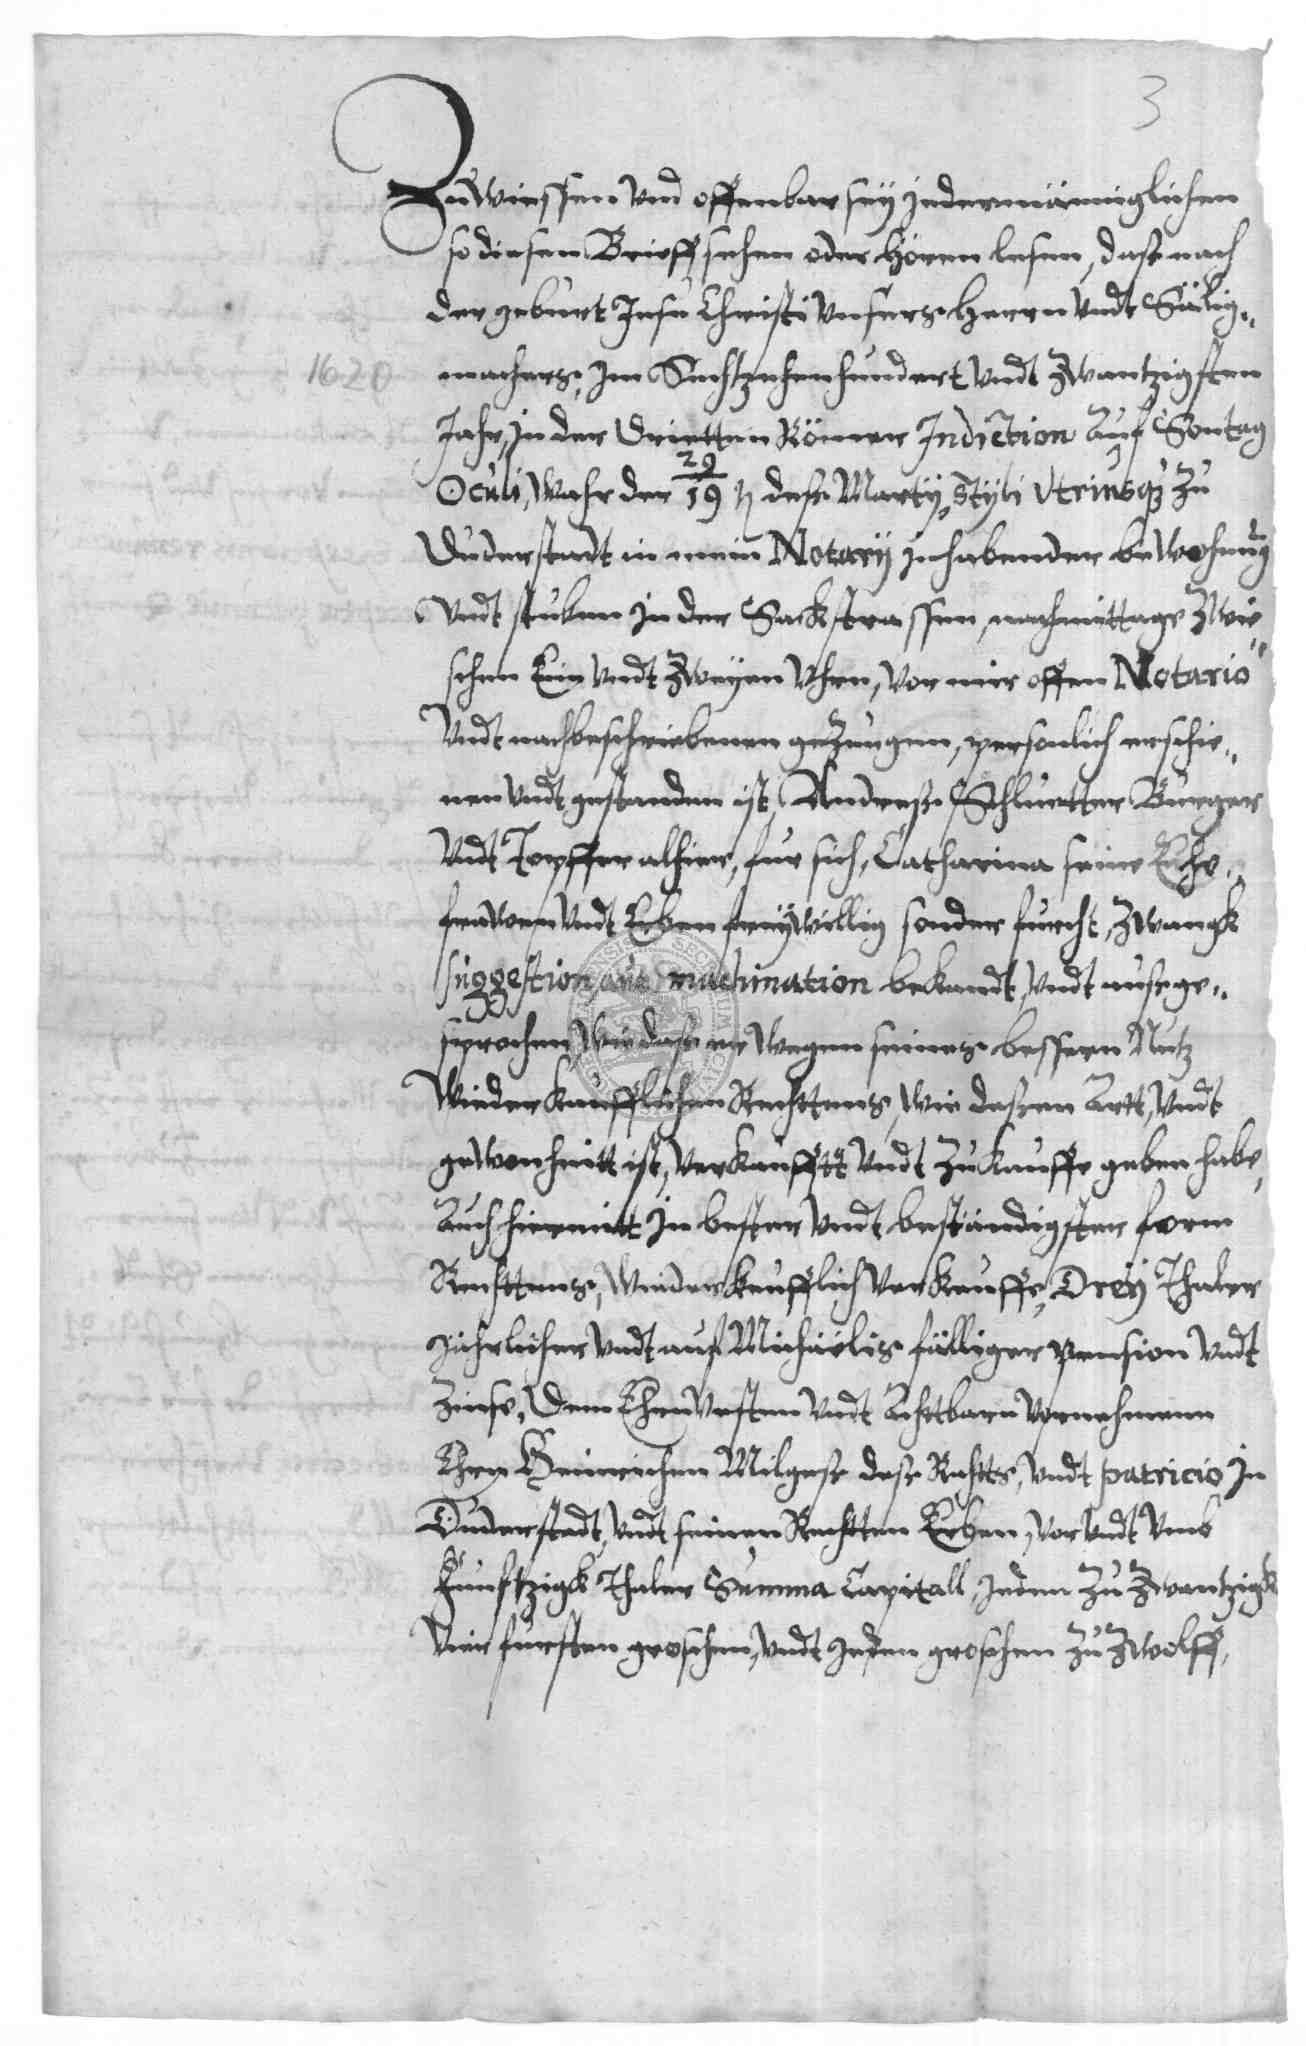 3
Zu wiessen vnd offenbar seÿ jedermänniglichen
so diesen Brieff sehen oder hören lesen, daß nach
der geburt Jesu Christi vnsers Herrn vndt Sälig„
1620
machers, im Sechtzehenhundert vndt Zwantzigsten
Jahr, in der Drietten Römer Indiction auf Sontag
Oculi, wahr der 29/19 deß Martÿ, Stÿli Vtriusq3 zu
Duderstadt in mein Notarÿ inhabender bewohnug
vndt stuben in der Sackstrassen, nachmittage zwie„
schen Ein vndt Zweÿen Vhrn, vor mir offen Notario
vndt nachbeschriebenen gezeugen, personlich erschie„
nen vndt gestanden ist, Andreß Schlutter Burger
vndt Topffer alhier, fur sich, Catharina seine Ehe„
frawen vndt Erben freÿwillig sonder furcht, zwangk
suggestion machination bekandt, vndt ausege„
sprochen, wie daß er wegen seines bessern Nutz
Wiederkaufflichen Rechttens, wie deßen Artt, vndt
gewonheitt ist, verkaufftt vndt zu kauffe geben habe,
Auch hiermitt in bester vndt beständigster form
Rechttens, wiederkaufflich verkauffe, Dreÿ Thaler
jährlicher vndt auf Michäelis fälliger pension vndt
Zinse, Dem Ehrnvesten vndt Achttbarn Vornehmenn
Ehrn Heinrichen Milgeß deß Rahtts, vndt patricio in
Duderstadt, vndt seinen Rechtten Erben, vor vndt vmb
Funftzigk Thaler Summa Capitall, jeden zu Zwantzigk
Vier fursten groschen, vndt jeden groschen zu Zwolff,